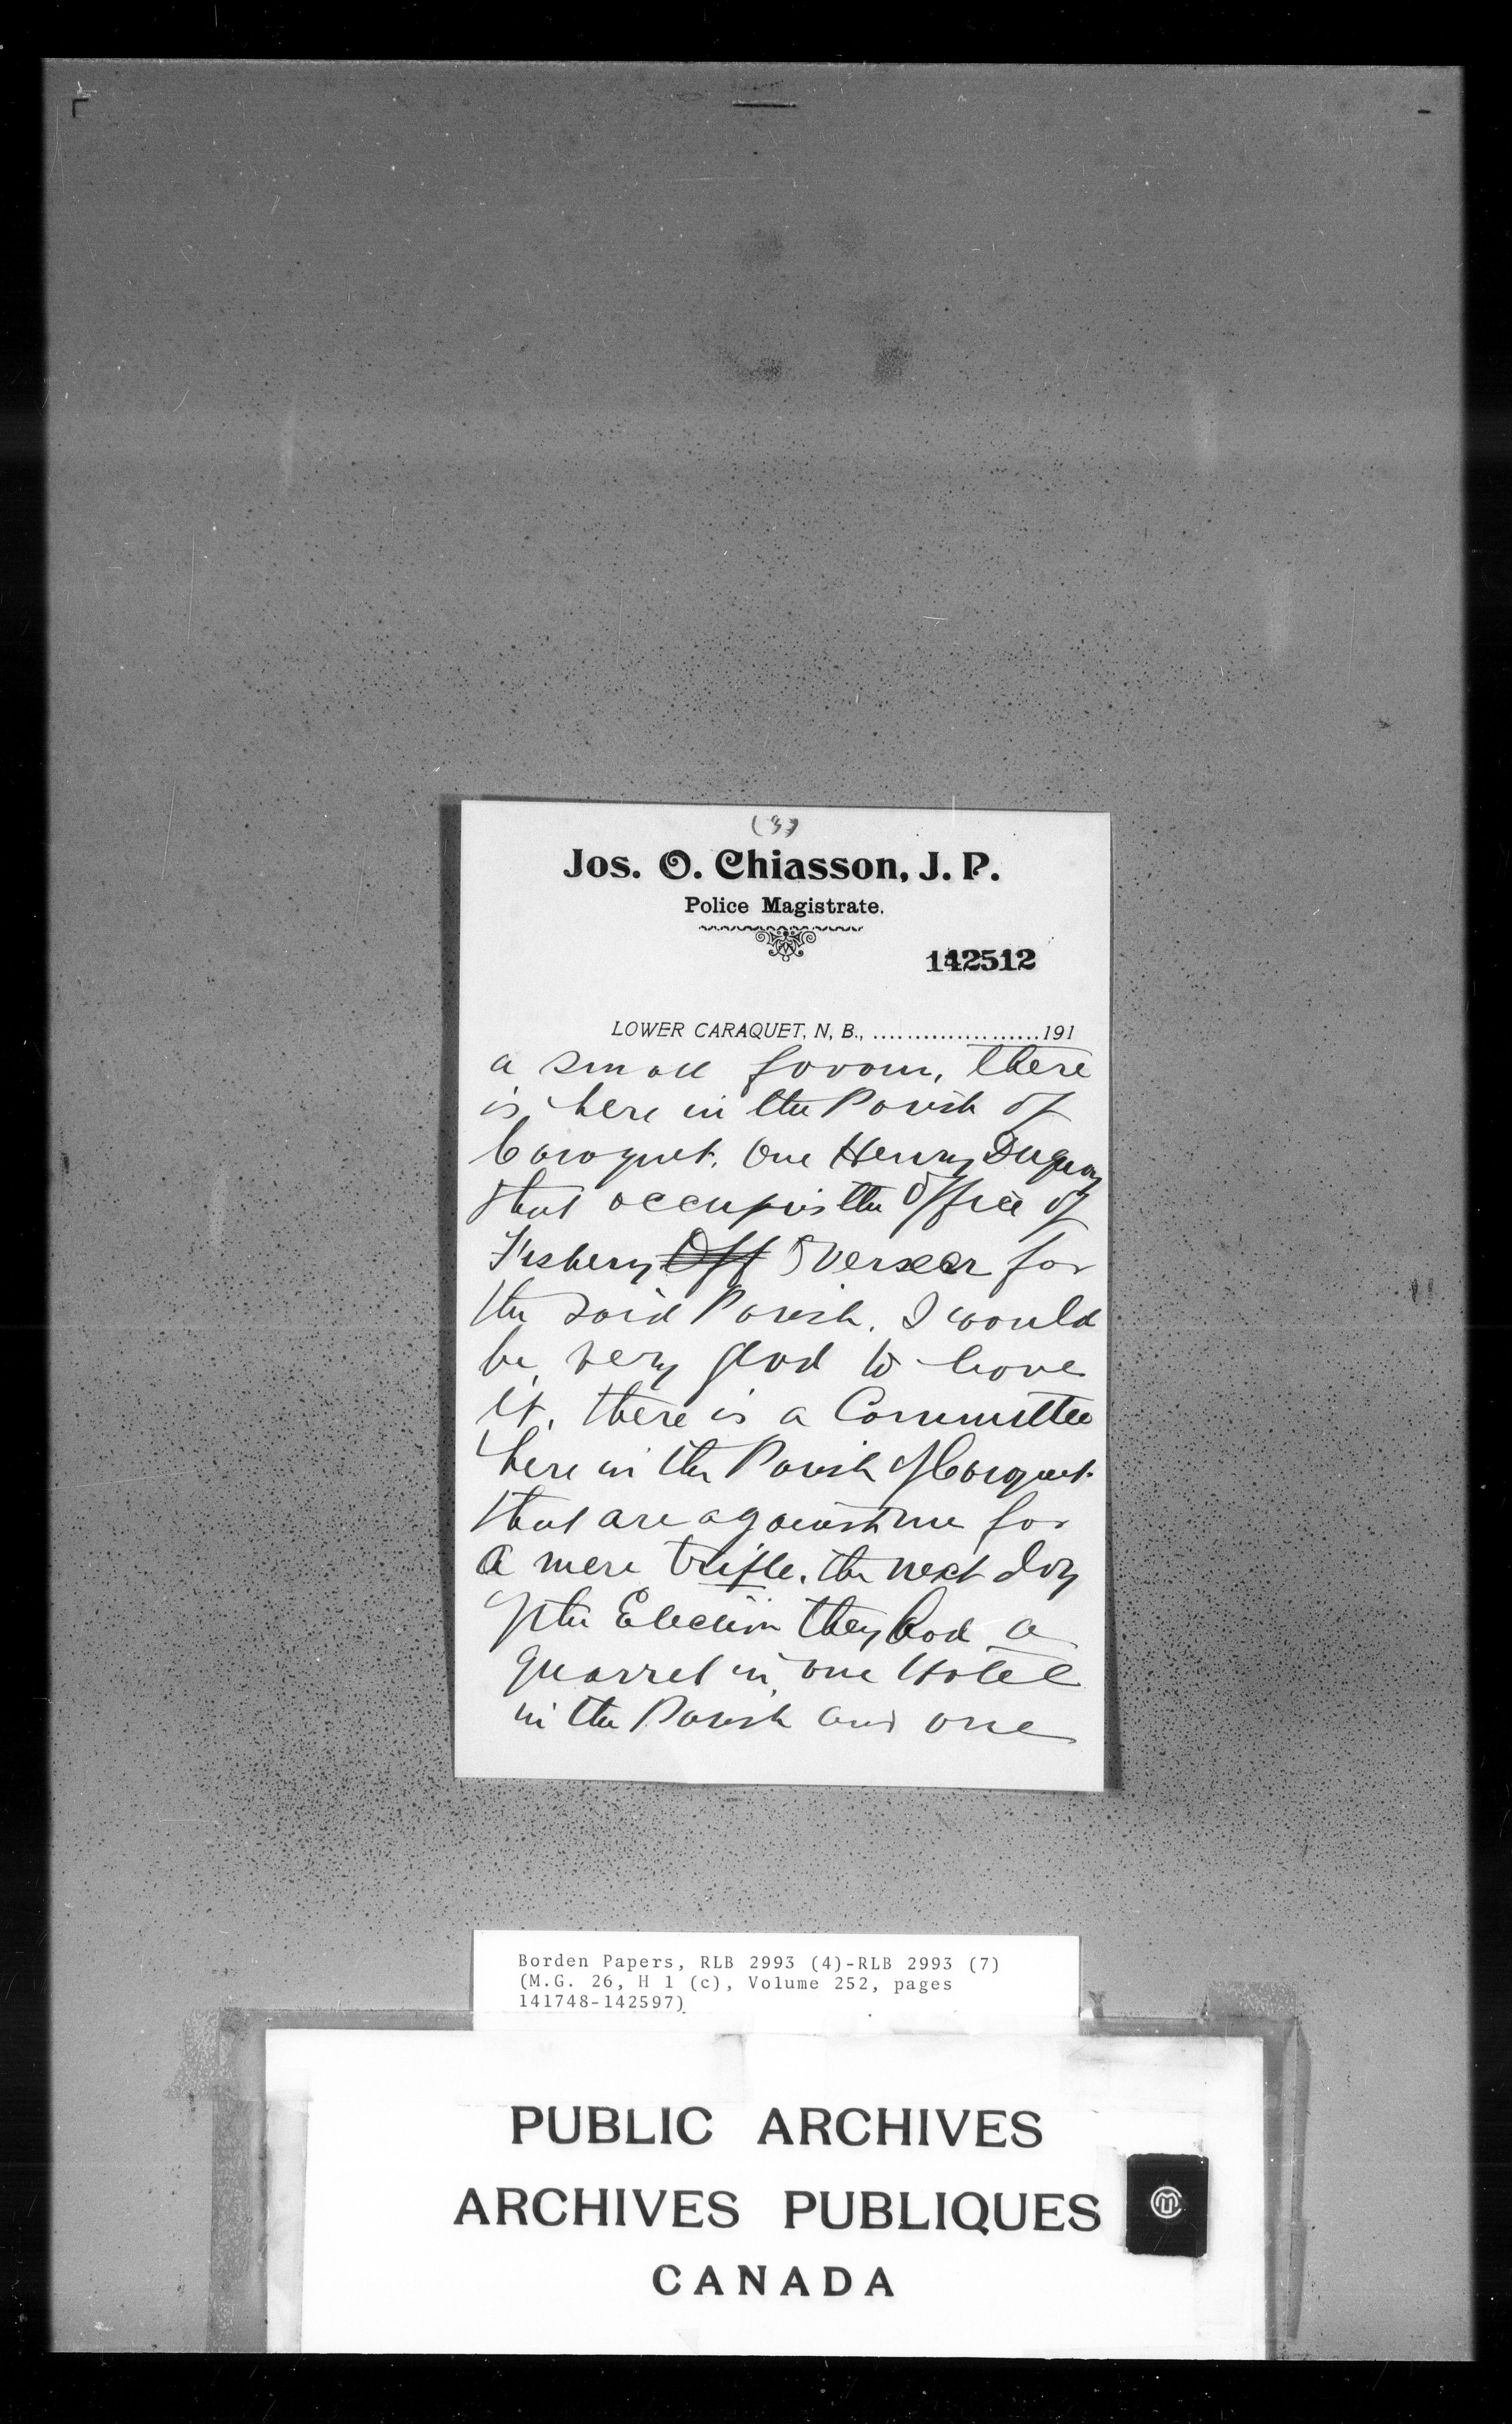 (3)
Jos. O. Chiasson, J. P.
Police Magistrate.
142512
LOWER CARAQUET, N, B., .....................191
a small favour, there
is here in the Parish of
Caraquet. One Henry Duguay
that occupis the Office of
Fishery Off Overseer for
the said Parish. I would
be very glad to have
it. there is a Committee
here in the Parish of Caraquet
that are against me for
a mere trifle. the next day
of the Election they had a
quarrel in one Hotel
in the Parish and one
Borden Papers, RLB 2993 (4)-RLB 2993 (7)
(M.G. 26, H 1 (c), Volume 252, pages
141748-142597)
PUBLIC ARCHIVES
ARCHIVES PUBLIQUES
CANADA